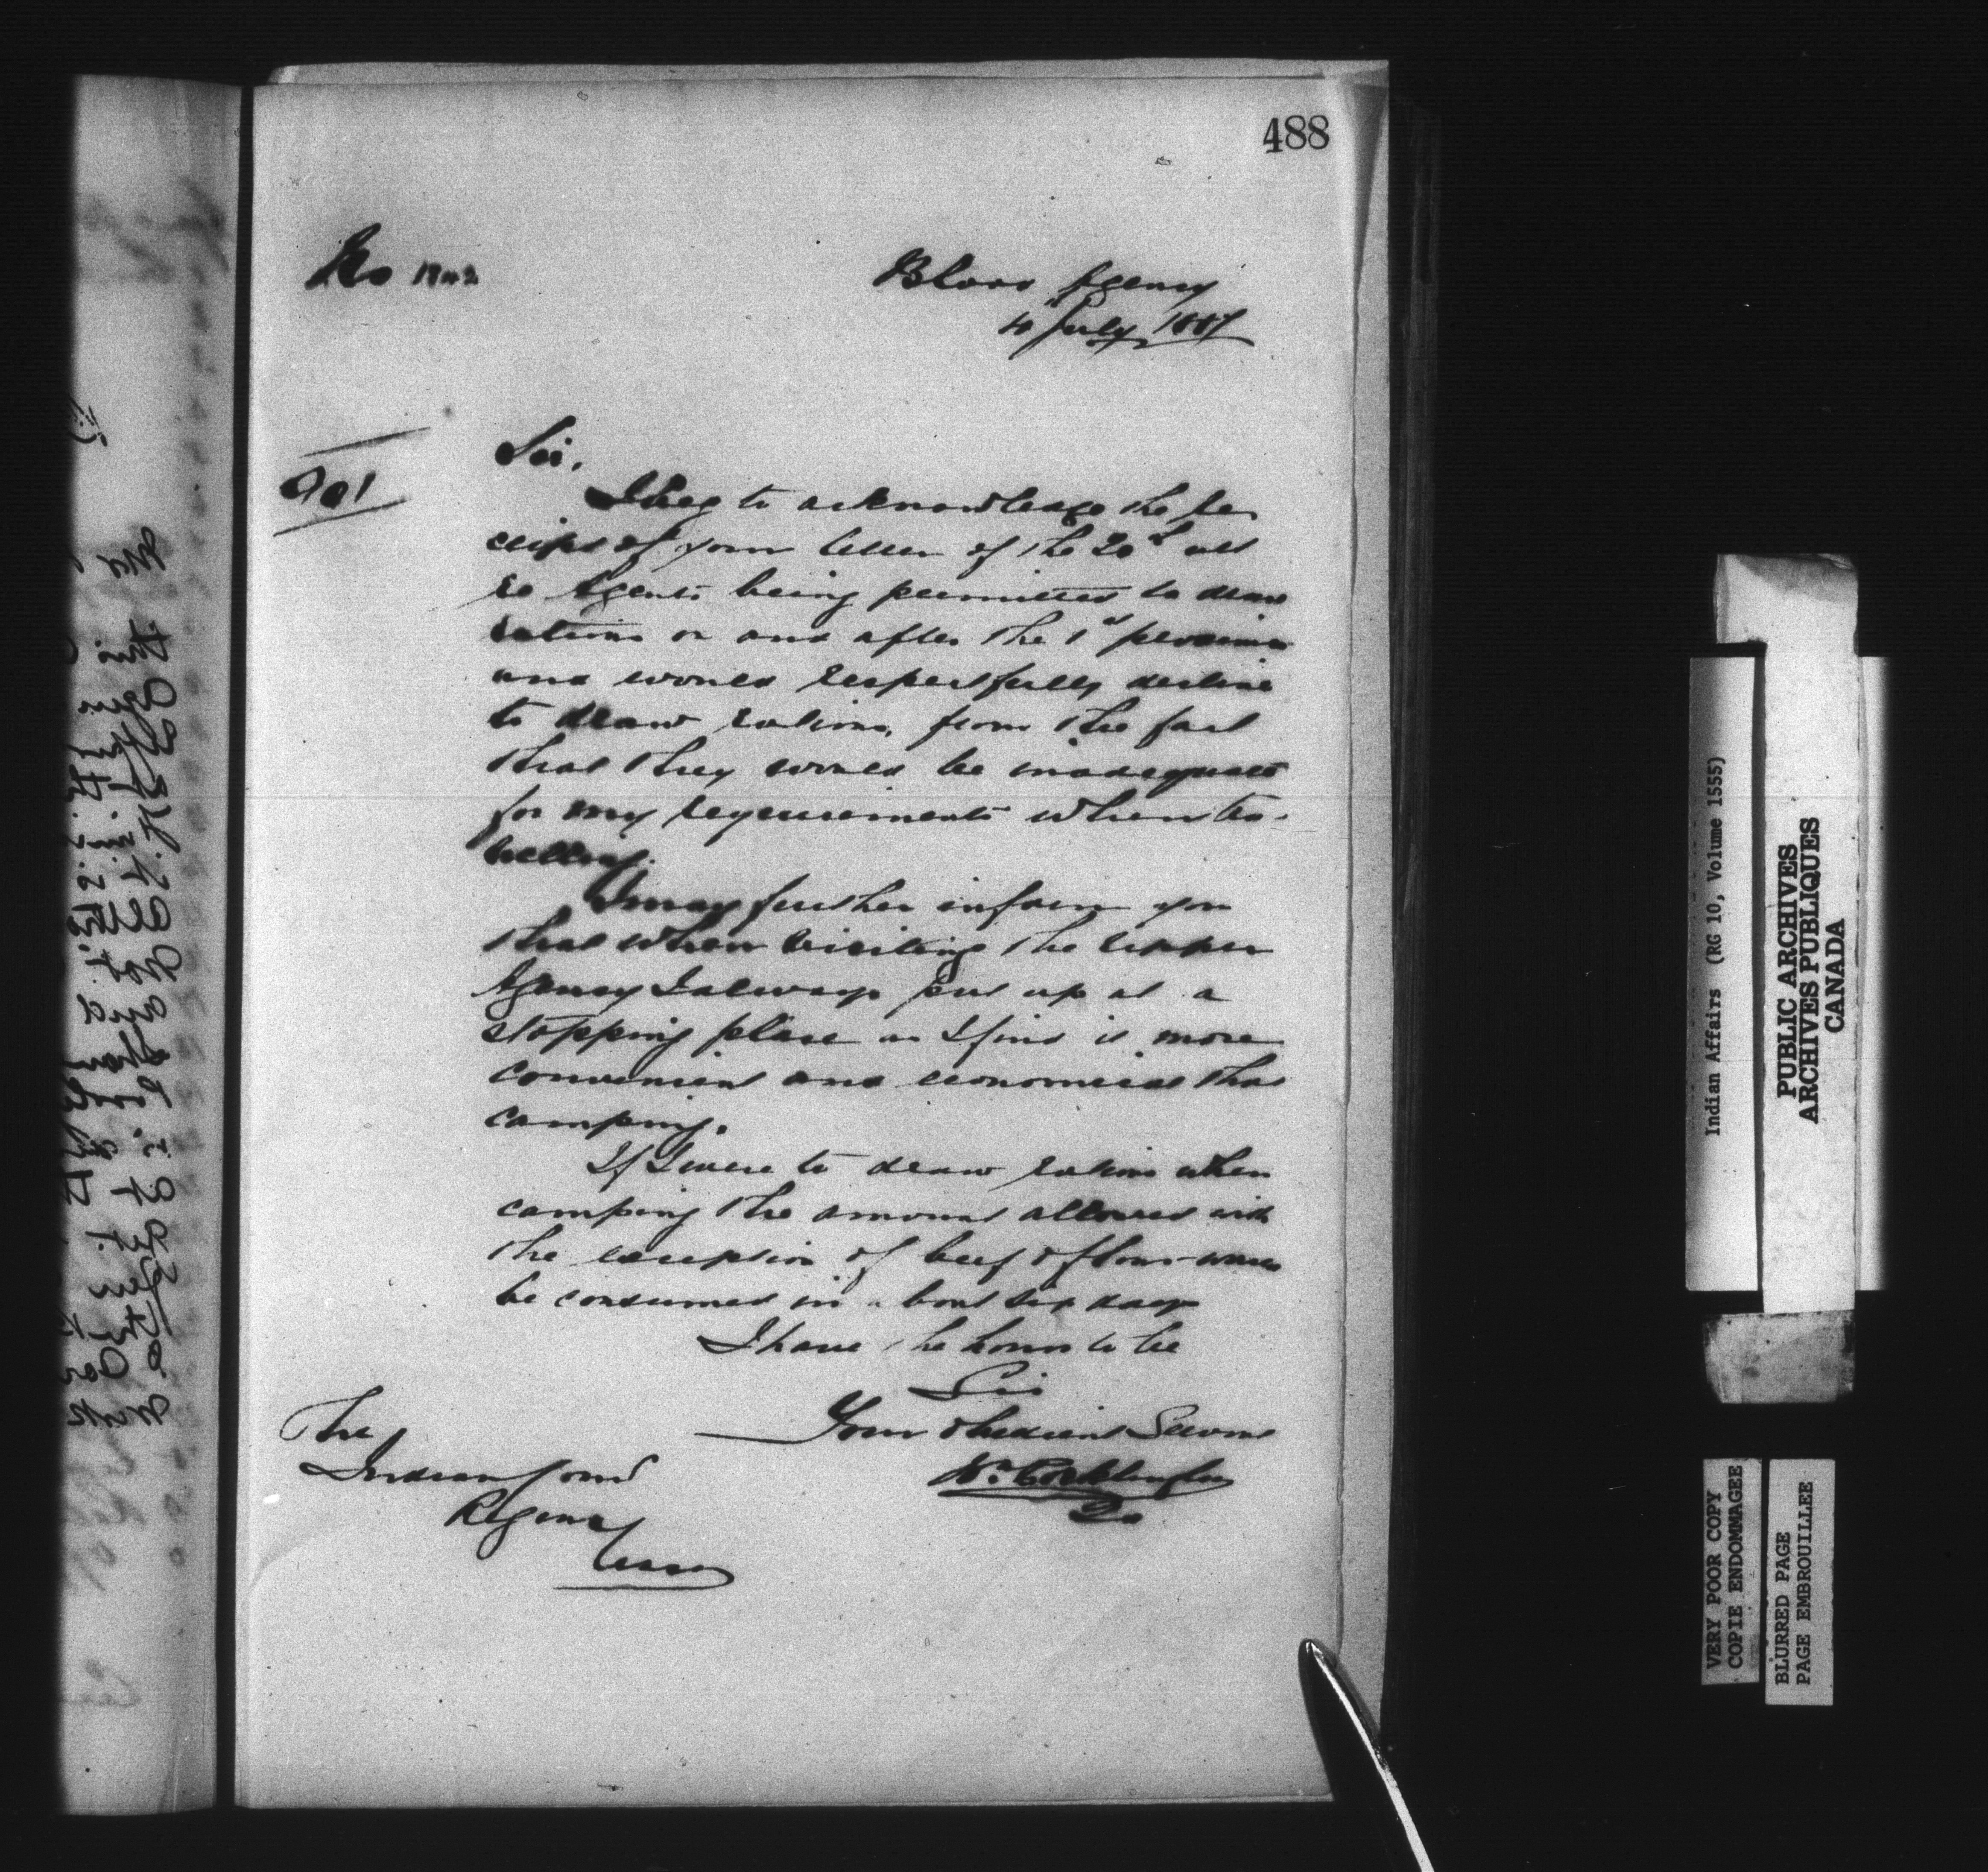 488
No 1842
Blood Agency
4th July 1887
901
Sir,
I beg to acknowledge the re
ceipt of your letter of the 20th ult
re Agents being permitted to draw
rations on and after the 1st proximo
and would respectfully decline
to draw rations, from the fact
that they would be inadequate
for my requirements when tra-
velling.
I may further inform you
that when visiting the upper
Agency I always put up at a
stopping place as I find it more
convenient and economical than
camping.
If I were to draw rations when
camping the amount allowed with
the exception of beef & flour would
be consumed in about six days
I have the honor to be
Sir
Your obedient Servant
Wm Pocklington
The
Indian Comr
Regina
Assa
Indian Affairs (RG 10, Volume 1555)
PUBLIC ARCHIVES
ARCHIVES PUBLIQUES
CANADA
VERY POOR COPY
COPIE ENDOMMAGEE
BLURRED PAGE
PAGE EMBROUILLEE